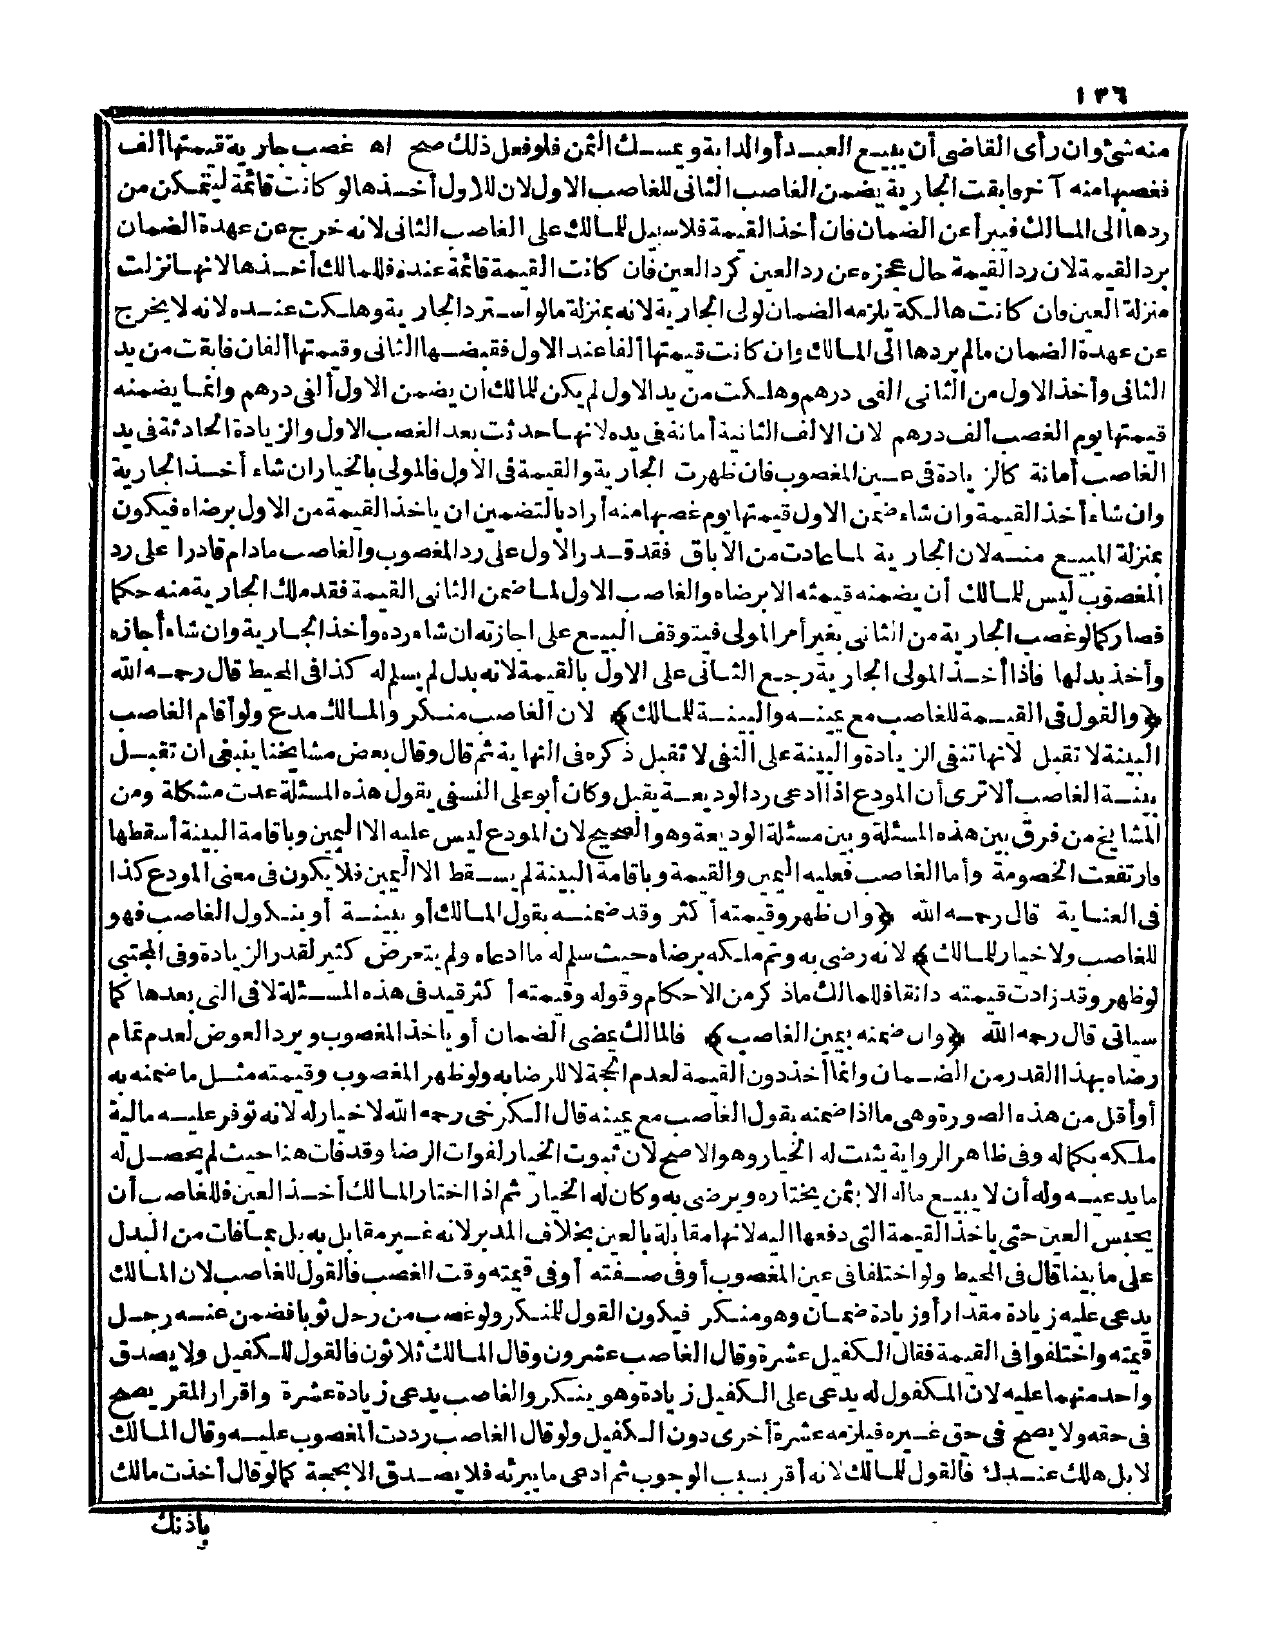 ١٣٦
منه شئ وان رأى القاضى أن يبيع العبد أو الدابة ويمسك الثمن فلو فعل ذلك صح اه غصب جارية قيمتها ألف
فغصبها منه آخر فابقت الجارية يضمن الغاصب الثانى للغاصب الاول لان للاول أخذها لو كانت قائمة ليتمكن من
ردها الى المالك فيبرأ عن الضمان فان أخذ القيمة فلا سبيل للمالك على الغاصب الثانى لانه خرج عن عهدة الضمان
برد القيمة لان رد القيمة حال عجزه عن رد العين كرد العين فان كانت القيمة قائمة عنده فللمالك أخذها لانها نزلت
منزلة العين وان كانت هالكة يلزمه الضمان لولى الجارية لانه بمنزلة مالو استرد الجارية وهلكت عنده لانه لا يخرج
عن عهدة الضمان مالم يردها الى المالك وان كانت قيمتها ألفا عند الاول فقبضها الثانى وقيمتها ألفان فابقت من يد
الثانى وأخذ الاول من الثانى الفى درهم وهلكت من يد الاول لم يكن للمالك ان يضمن الاول ألفى درهم وانما يضمنه
قيمتها يوم الغصب ألف درهم لان الالف الثانية أمانة فى يده لانها حدثت بعد الغصب الاول والزيادة الحادثة فى يد
الغاصب أمانة كالزيادة فى عين المغصوب فان ظهرت الجارية والقيمة فى الاول فالمولى بالخيار ان شاء أخذ الجارية
وان شاء أخذ القيمة وان شاء ضمن الاول قيمتها يوم غصبها منه أراد بالتضمين ان ياخذ القيمة من الاول برضاه فيكون
بمنزلة المبيع منه لان الجارية لما عادت من الاباق فقد قدر الاول على رد المغصوب والغاصب مادام قادرا على رد
المغصوب ليس للمالك أن يضمنه قيمته الا برضاه والغاصب الاول لما ضمن الثانى القيمة فقد ملك الجارية منه حكما
فصار كما لو غصب الجارية من الثانى بغير أمر المولى فيتوقف البيع على اجازته ان شاه رده وأخذ الجارية وان شاه أجازه
وأخذ بدلها فاذا أخذ المولى الجارية رجع الثانى على الاول بالقيمة لانه بدل لم يسلم له كذا فى المحيط قال رحمه الله
﴿والقول فى القيمة للغاصب مع يمينه والبينة للمالك﴾ لان الغاصب منكر والمالك مدع ولو أقام الغاصب
البينة لا تقبل لانها تنفى الزيادة والبينة على النفى لا تقبل ذكره فى النهاية ثم قال وقال بعض مشايخنا ينبغى ان تقبل
بينة الغاصب ألا ترى أن المودع اذا ادعى رد الوديعة يقبل وكان أبو على النسفى يقول هذه المسئلة عدت مشكلة ومن
المشايخ من فرق بين هذه المسئلة وبين مسئلة الوديعة وهو الصحيح لان المودع ليس عليه الا اليمين وباقامة البينة أسقطها
وارتفعت الخصومة وأما الغاصب فعليه اليمين والقيمة وباقامة البينة لم يسقط الا اليمين فلا يكون فى معنى المودع كذا
فى العناية قال رحمه الله ﴿وان ظهر وقيمته أكثر وقد ضمنه بقول المالك أو ببينة أو بنكول الغاصب فهو
للغاصب ولا خيار للمالك﴾ لانه رضى به وتم ملكه برضاه حيث سلم له ما ادعاه ولم يتعرض كثير لقدر الزيادة وفى المجتبى
لو ظهر وقد زادت قيمته دانقا فللمالك ماذكر من الاحكام وقوله وقيمته أكثر قيد فى هذه المسئلة لا فى التى بعدها كما
سياتى قال رحمه الله ﴿وان ضمنه بيمين الغاصب﴾ فالمالك يمضى الضمان أو ياخذ المغصوب ويرد العوض لعدم تمام
رضاه بهذا القدر من الضمان وانما أخذ دون القيمة لعدم الحجة لا للرضا به ولو ظهر المغصوب وقيمته مثل ما ضمنه به
أو أقل من هذه الصورة وهى مااذا ضمنه بقول الغاصب مع يمينه قال الكرخى رحمه الله لا خيار له لانه توفر عليه مالية
ملكه بكماله وفى ظاهر الرواية يثبت له الخيار وهو الاصح لان ثبوت الخيار لفوات الرضا وقد فات هنا حيث لم يحصل له
ما يدعيه وله أن لا يبيع ماله الا بثمن يختاره ويرضى به وكان له الخيار ثم اذا اختار المالك أخذ العين فللغاصب أن
يحبس العين حتى ياخذ القيمة التى دفعها اليه لانها مقابلة بالعين بخلاف المدبر لانه غير مقابل به بل بمافات من البدل
على ما بينا قال فى المحيط ولو اختلفا فى عين المغصوب أو فى صفته أو فى قيمته وقت الغصب فالقول للغاصب لان المالك
يدعى عليه زيادة مقدار أو زيادة ضمان وهو منكر فيكون القول للمنكر ولو غصب من رجل ثوبا فضمن عنه رجل
قيمته واختلفوا فى القيمة فقال الكفيل عشرة وقال الغاصب عشرون وقال المالك ثلاثون فالقول للكفيل ولا يصدق
واحد منهما عليه لان المكفول له يدعى على الكفيل زيادة وهو ينكر والغاصب يدعى زيادة عشرة واقرار المقر يصح
فى حقه ولا يصح فى حق غيره فيلزمه عشرة أخرى دون الكفيل ولو قال الغاصب رددت المغصوب عليه وقال المالك
لا بل هلك عندك فالقول للمالك لانه أقر بسبب الوجوب ثم ادعى ما يبرئه فلا يصدق الا بحجة كما لو قال أخذت مالك
باذنك